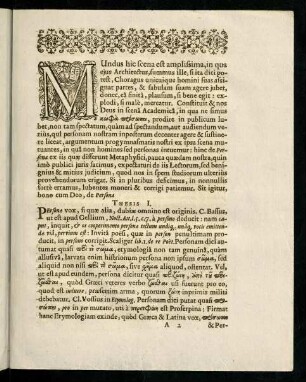 MUndus hic scena est amplissima, in qua
ejus Architectus, summus ille, si ita dici po-
test, Choragus unicuique homini suas assi-
gnat partes, & fabulam suam agere jubet,
donec, ea finitâ, plausum, si bene egit: ex-
plodi, si malè, mereatur. Constituit & nos
Deus in scenâ Academicâ, in qua ne simus
prodire in publicum lu-
bet, non tam spectatum, quàm ad spectandum, aut audiendum ve-
niùs, quid personam nostram inposterum docenter agere & sustine-
re liceat, argumentum progymnasmatis nostri ex ipsa scena mu-
tuantes, in quâ non homines sed personas intuemur: hinc de Per-
sona ex iis quæ differunt Metaphysici, pauca quædam nostra, quin
imò publici juris facturi, exspectaturi de iis Lectorum, sed beni-
gnius & mitius judicium, quod nos in spem studiorum ulteriùs
provehendorum erigat. Si in pluribus desistimus, in nonnullis
fortè erramus, lubentes moneri & corrigi patiemur. Sit igitur,
bono cum Deo, de Persona
THESIS I.
PErsona vox, si quæ alia, dubiæ omnino est originis. C. Bassus,
ut est apud Gellium, Noct. Att. l. 5. c. 7. à personando deducit: nam ca-
put, inquit, & os cooperimento personæ tectum undiq, unâq, vocis emittendæ
viâ, pervium est: Invitâ poësi, quæ in persona penultimam produ-
cit, in personare corripit. Scaliger lib. 1. de re Poët. Personam dici au-
tumat quasi etymologiâ non tam genuinâ, quàm
allusivâ, larvata enim histrionum persona non ipsum
aliquod non sed aliquod, ostentat. Vel,
ut est apud eundem, persona dicitur quasi
quod Græci veteres verbo usi fuerint pro eo,
quod est præsertim arma, quorum inprimis militi
debebatur. Cl. Vossius in Etymolog. Personam dici putat quasi
pro in per mutato, uti à est Proserpina: Firmat
hanc Etymologiam exinde, quod Græca & Latina vox,
A 2 & Per-